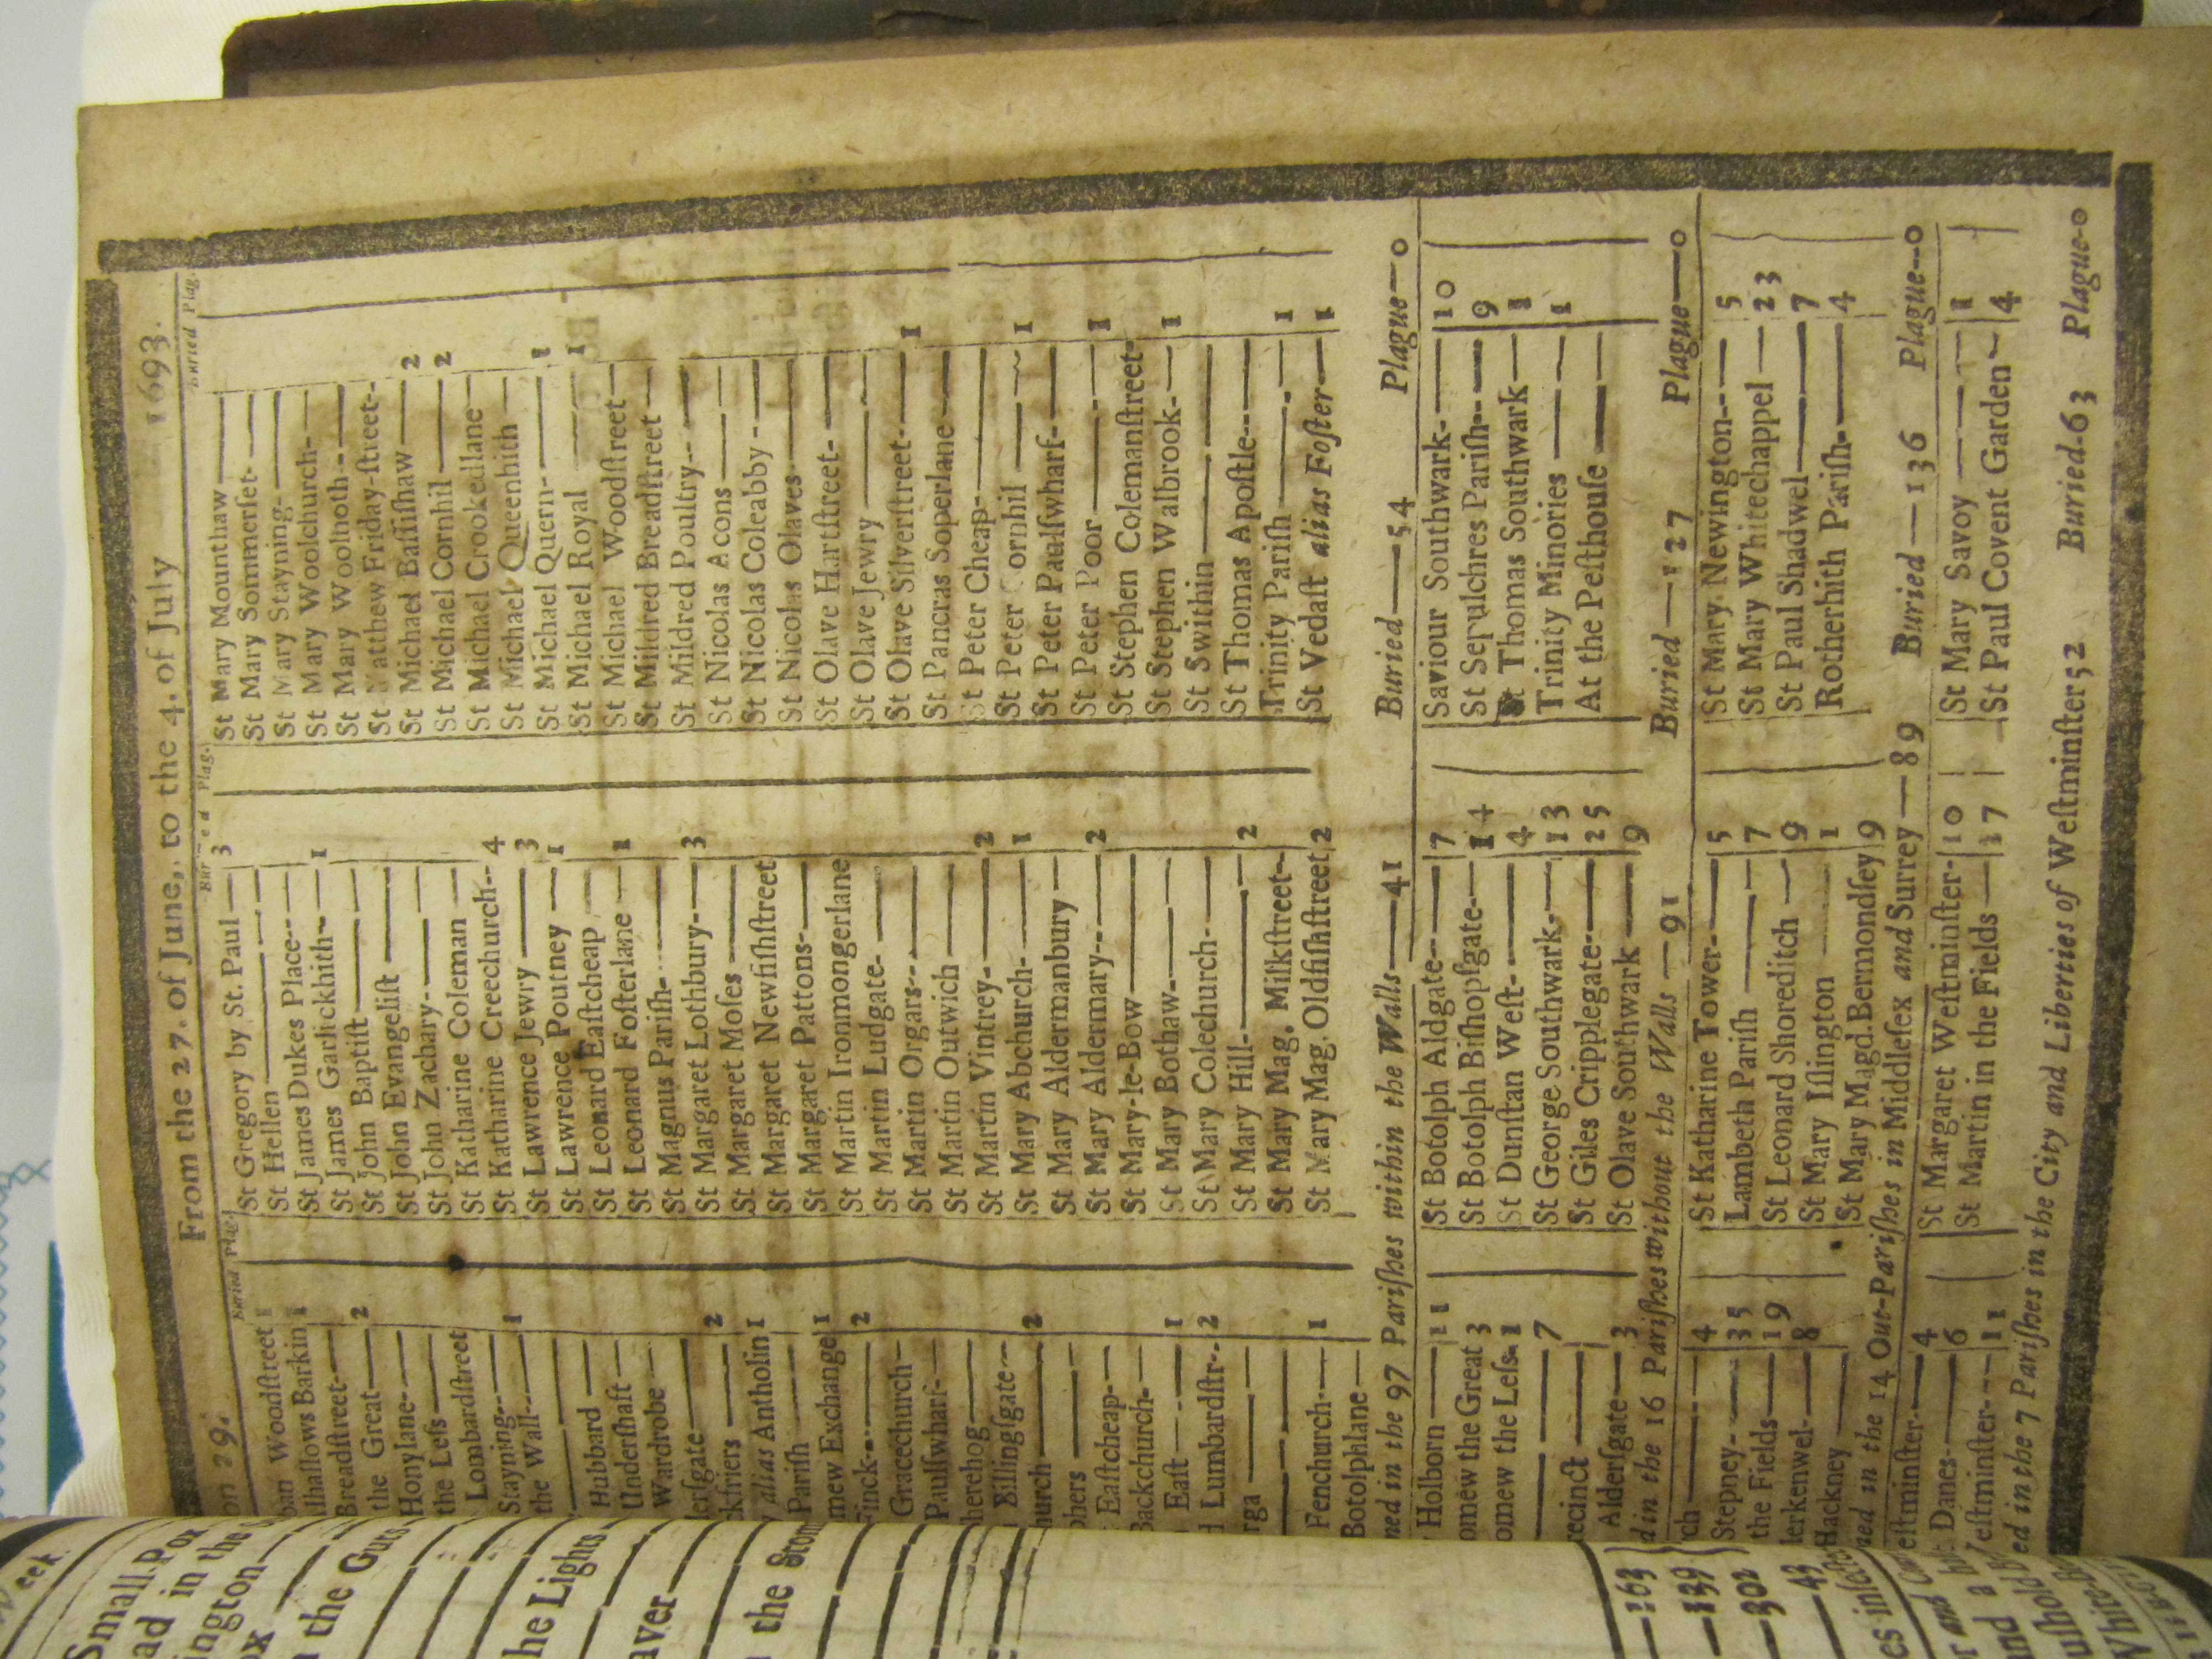 on 29.
From the 27. of June, to the 4. of July 1693.
Buried Plag.
Woodstreet 1
lhallows Barkin 1
Breadstreet
the Great 2
Honylane
the Leſs
Lombardſtreet
Stayning
the Wall 1
Hubbard
Underſhaft
Wardrobe
derſgate 2
ckfriers
alias Antholin 1
Pariſh
mew Exchange 1
Finck 2
Gracechurch
Paulſwharf
herehog
Billingſgate
hurch 2
phers
Eaſtcheap
Backchurch
Eaſt 1
d Lumbardſtr 2
rga
Fenchurch 1
Botolphlane
Buried Plag.
St Gregory by St. Paul 3
St Hellen
St James Dukes Place
St James Garlickhith 1
St John Baptiſt
St John Evangeliſt
St John Zachary
St Katharine Coleman
St Katharine Creechurch 4
St Lawrence Jewry 3
St Lawrence Poutney 1
St Leonard Eaſtcheap
St Leonard Foſterlane 1
St Magnus Pariſh
St Margaret Lothbury 3
St Margaret Moſes
St Margaret Newfiſhſtreet
St Margaret Pattons
St Martin Ironmongerlane
St Martin Ludgate
St Martin Orgars
St Martin Outwich
St Martin Vintrey 2
St Mary Abchurch 1
St Mary Aldermanbury
St Mary Aldermary 2
St Mary-le-Bow
St Mary Bothaw
St Mary Colechurch
St Mary Hill 2
St Mary Mag. Milkſtreet
St Mary Mag. Oldfiſhſtreet 2
Buried Plag.
St Mary Mounthaw
St Mary Sommerſet
St Mary Stayning
St Mary Woolchurch
St Mary Woolnoth
St Matthew Friday-ſtreet
St Michael Baſſiſhaw 2
St Michael Cornhil 2
St Michael Crookedlane
St Michael Queenhith
St Michael Quern 1
St Michael Royal 1
St Michael Woodſtreet
St Mildred Breadſtreet
St Mildred Poultry
St Nicolas Acons
St Nicolas Coleabby
St Nicolas Olaves
St Olave Hartſtreet
St Olave Jewry
St Olave Silverſtreet 1
St Pancras Soperlane
St Peter Cheap
St Peter Cornhil 1
St Peter Paulſwharf
St Peter Poor 1
St Stephen Colemanſtreet
St Stephen Walbrook 1
St Swithin
St Thomas Apoſtle
Trinity Pariſh 1
St Vedaſt alias Foſter 1
ned in the 97 Pariſhes within the Walls — 41 Buried — 54 Plague — 0
Holborn 11
omew the Great 3
omew the Leſs 1
7
recinct
Alderſgate 3
St Botolph Aldgate 7
St Botolph Biſhopſgate 14
St Dunſtan Weſt 4
St George Southwark 13
St Giles Cripplegate 25
St Olave Southwark 9
Saviour Southwark 10
St Sepulchres Pariſh 9
St Thomas Southwark 1
Trinity Minories 1
At the Peſthouſe
d in the 16 Pariſhes without the Walls — 91 Buried — 127 Plague — 0
rch 4
Stepney 35
the Fields 19
lerkenwel 8
Hackney
St Katharine Tower 5
Lambeth Pariſh 7
St Leonard Shoreditch 9
St Mary Iſlington 1
St Mary Magd. Bermondſey 9
St Mary Newington 5
St Mary Whitechappel 23
St Paul Shadwel 7
Rotherhith Pariſh 4
ned in the 14 Out-Pariſhes in Middleſex and Surrey — 89 Buried — 136 Plague — 0
eſtminſter 4
Danes 6
eſtminſter 11
St Margaret Weſtminſter 10
St Martin in the Fields 17
St Mary Savoy 1
St Paul Covent Garden 4
ed in the 7 Pariſhes in the City and Liberties of Weſtminſter 52 Buried 63 Plague 0
eek.
Small Pox
ad in the
ington
ox
n the Guts
he Lights
aver
the Stom
163
139
302
43
es infec